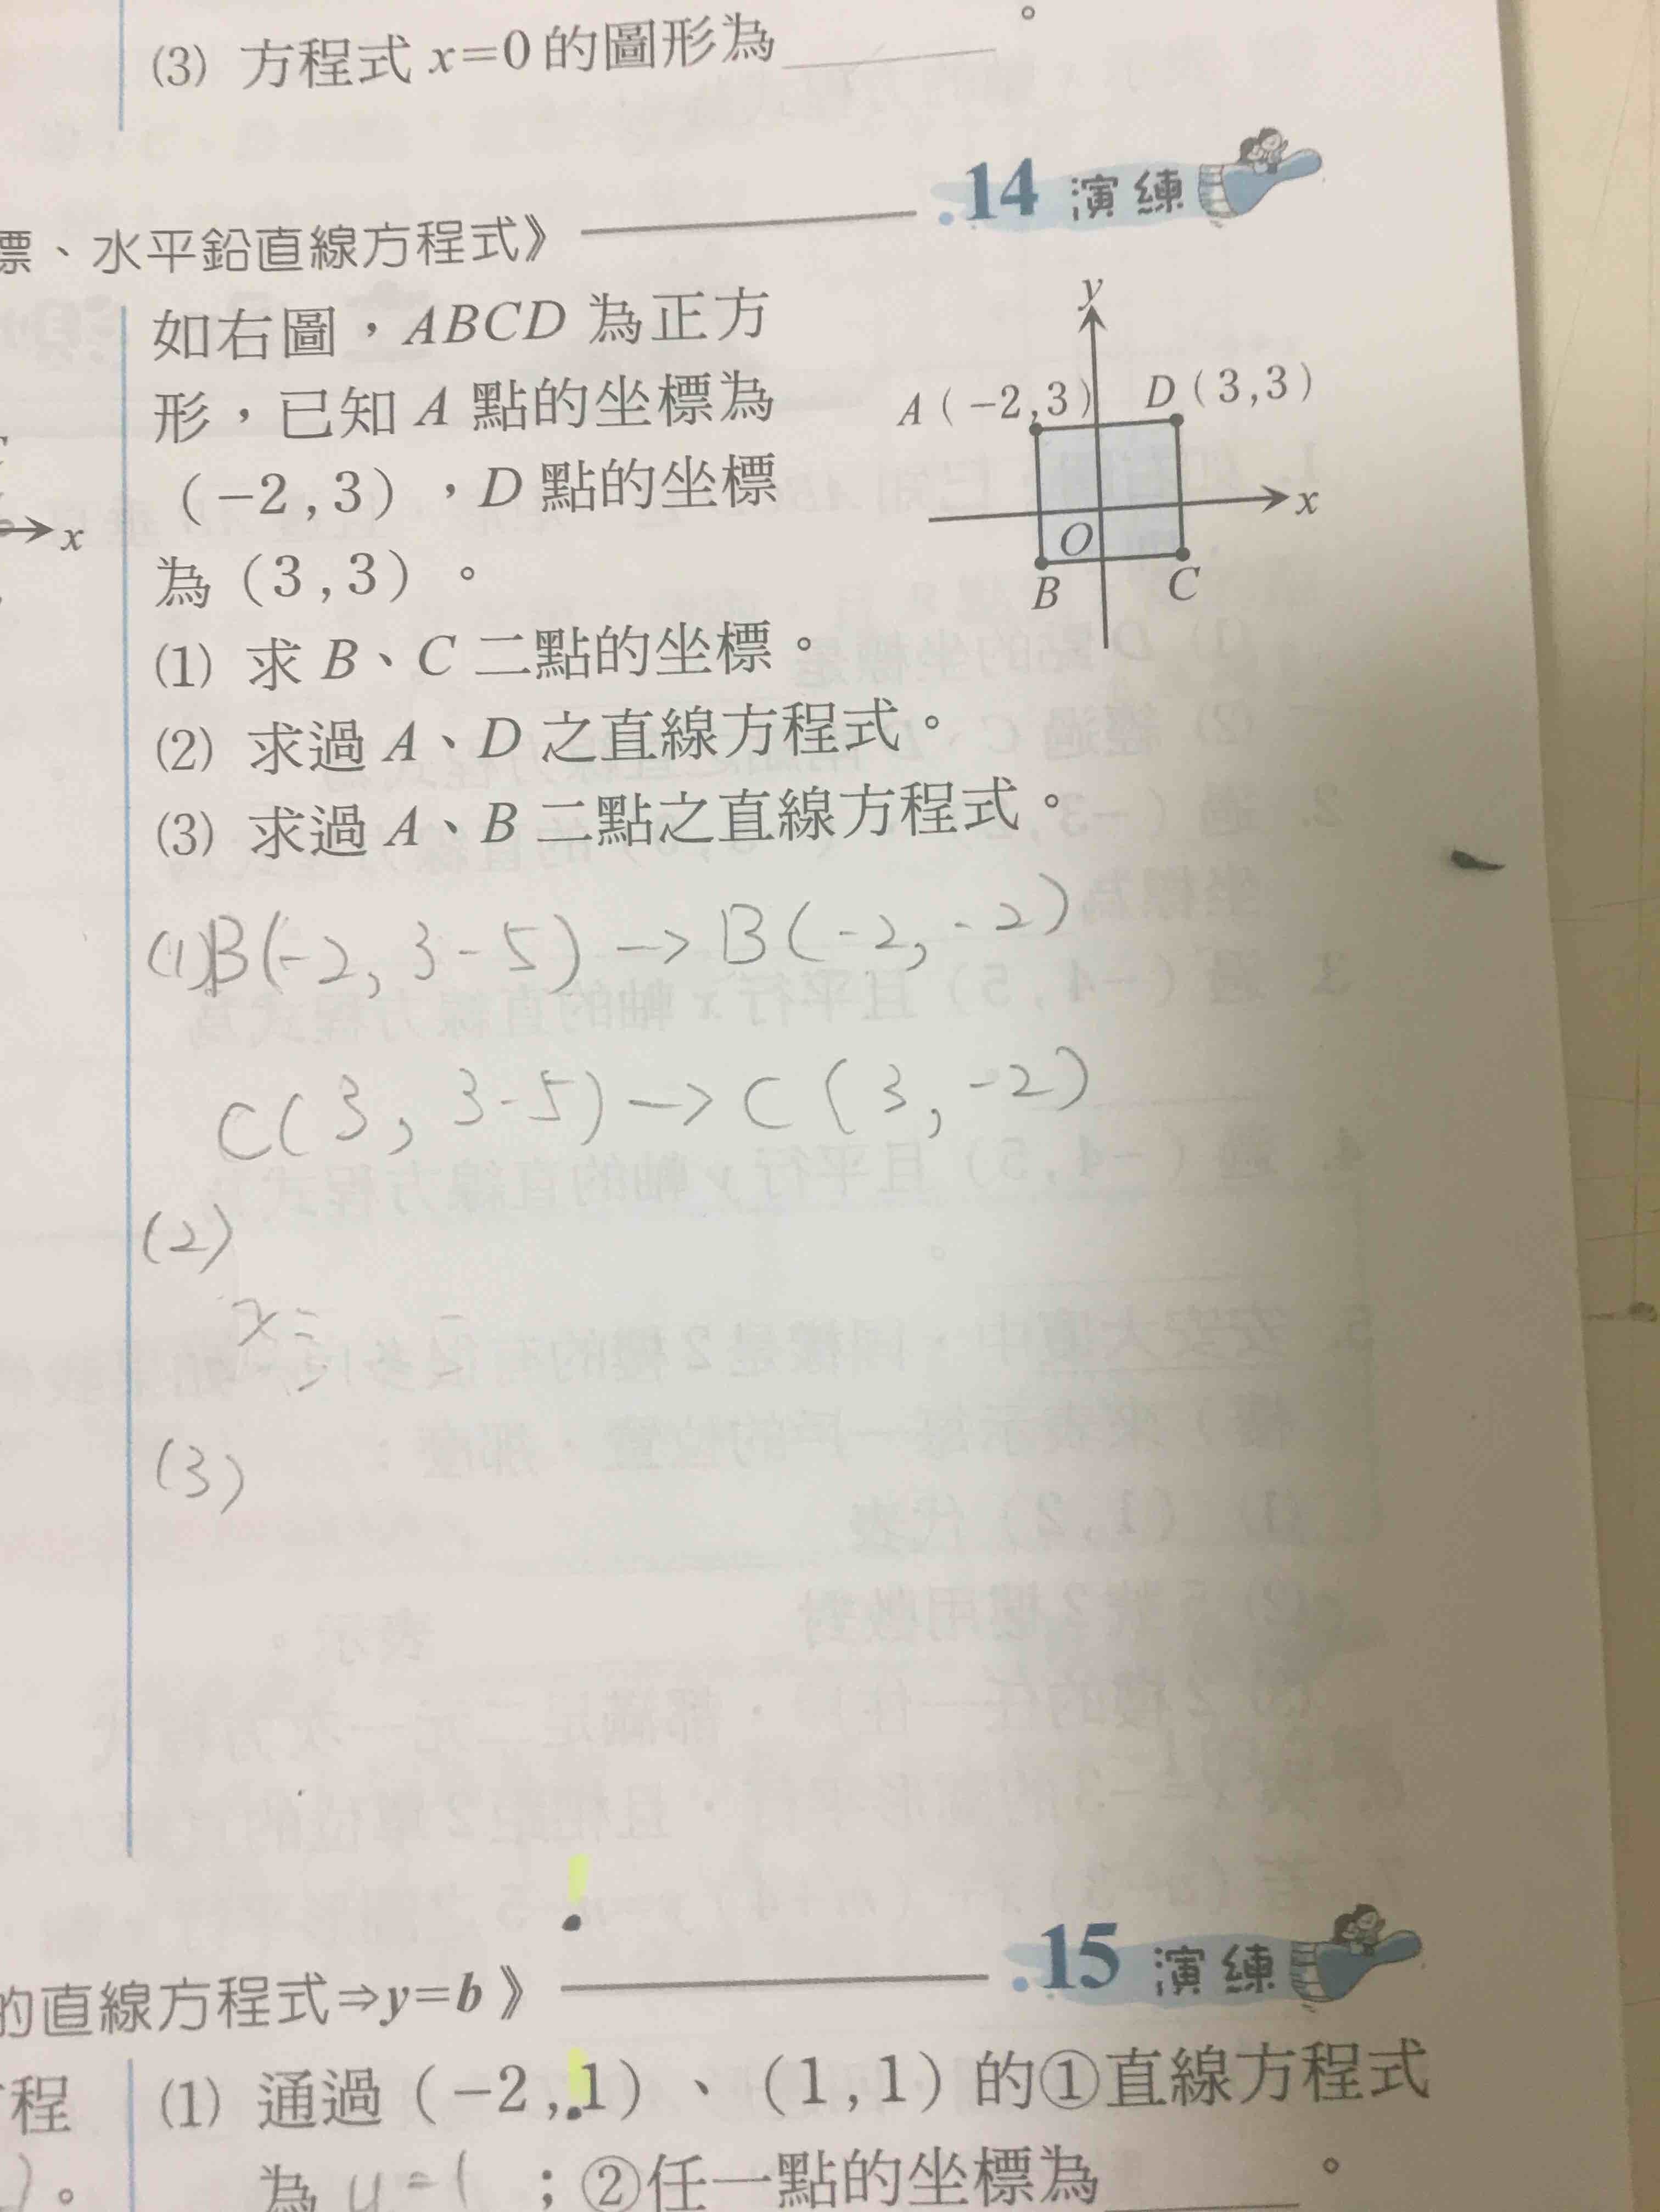 (3) 方程式 x=0 的圖形為______。
14 演練
標、水平鉛直線方程式》
如右圖，ABCD 為正方
形，已知 A 點的坐標為
(-2,3)，D 點的坐標
為 (3,3)。
y
A(-2,3) D(3,3)
x
O
B C
x
(1) 求 B、C 二點的坐標。
(2) 求過 A、D 之直線方程式。
(3) 求過 A、B 二點之直線方程式。
(1)B(-2, 3-5) → B(-2, -2)
C(3, 3-5) → C(3, -2)
(2)
x=
(3)
的直線方程式⇒y=b》
15 演練
程
(1) 通過 (-2,1)、(1,1) 的①直線方程式
為 y=1 ；②任一點的坐標為______。
)。